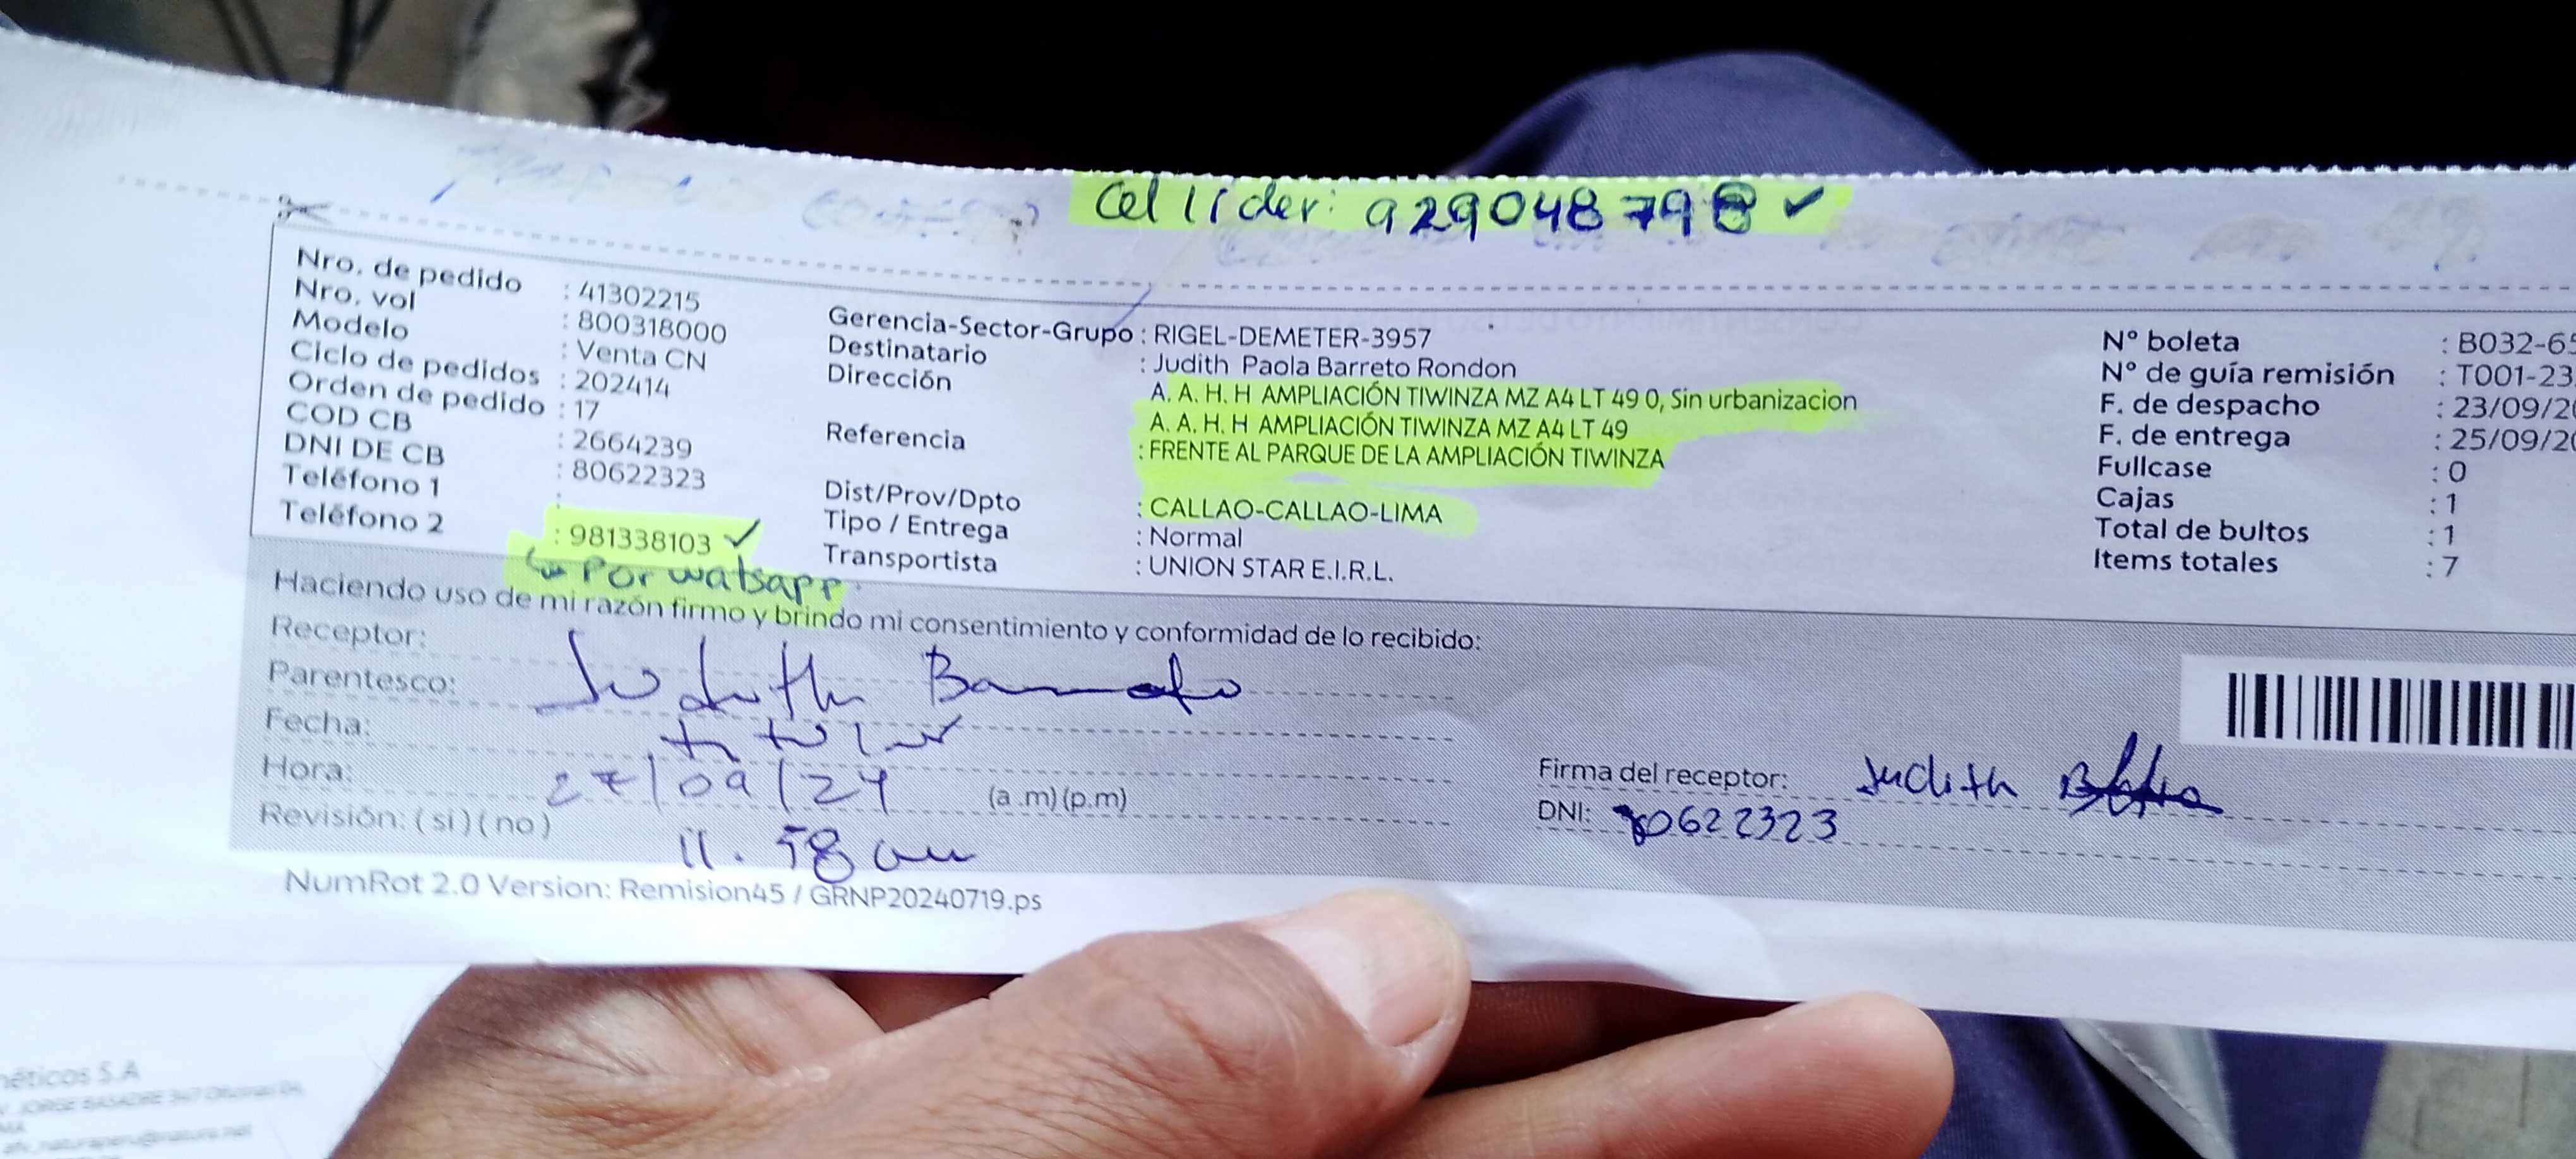 Cel lider: 929048798 ✓
Nro. de pedido : 41302215
Nro. vol : 800318000
Modelo : Venta CN
Ciclo de pedidos : 202414
Orden de pedido : 17
COD CB : 2664239
DNI DE CB : 80622323
Teléfono 1 :
Teléfono 2 : 981338103 ✓
↳ Por watsapp.
Gerencia-Sector-Grupo : RIGEL-DEMETER-3957
Destinatario : Judith Paola Barreto Rondon
Dirección A. A. H. H AMPLIACIÓN TIWINZA MZ A4 LT 49 0, Sin urbanizacion
A. A. H. H AMPLIACIÓN TIWINZA MZ A4 LT 49
Referencia : FRENTE AL PARQUE DE LA AMPLIACIÓN TIWINZA
Dist/Prov/Dpto : CALLAO-CALLAO-LIMA
Tipo / Entrega : Normal
Transportista : UNION STAR E.I.R.L.
N° boleta : B032-65
N° de guía remisión : T001-23
F. de despacho : 23/09/20
F. de entrega : 25/09/20
Fullcase : 0
Cajas : 1
Total de bultos : 1
Items totales : 7
Haciendo uso de mi razón firmo y brindo mi consentimiento y conformidad de lo recibido:
Receptor: Judith Barreto
Parentesco: titular
Fecha: 27/09/24
Hora: 11.58 am (a.m)(p.m)
Revisión: ( si ) ( no )
Firma del receptor: Judith
DNI: 80622323
NumRot 2.0 Version: Remision45 / GRNP20240719.ps
éticos S.A
JORGE BASADRE 347 Oficina